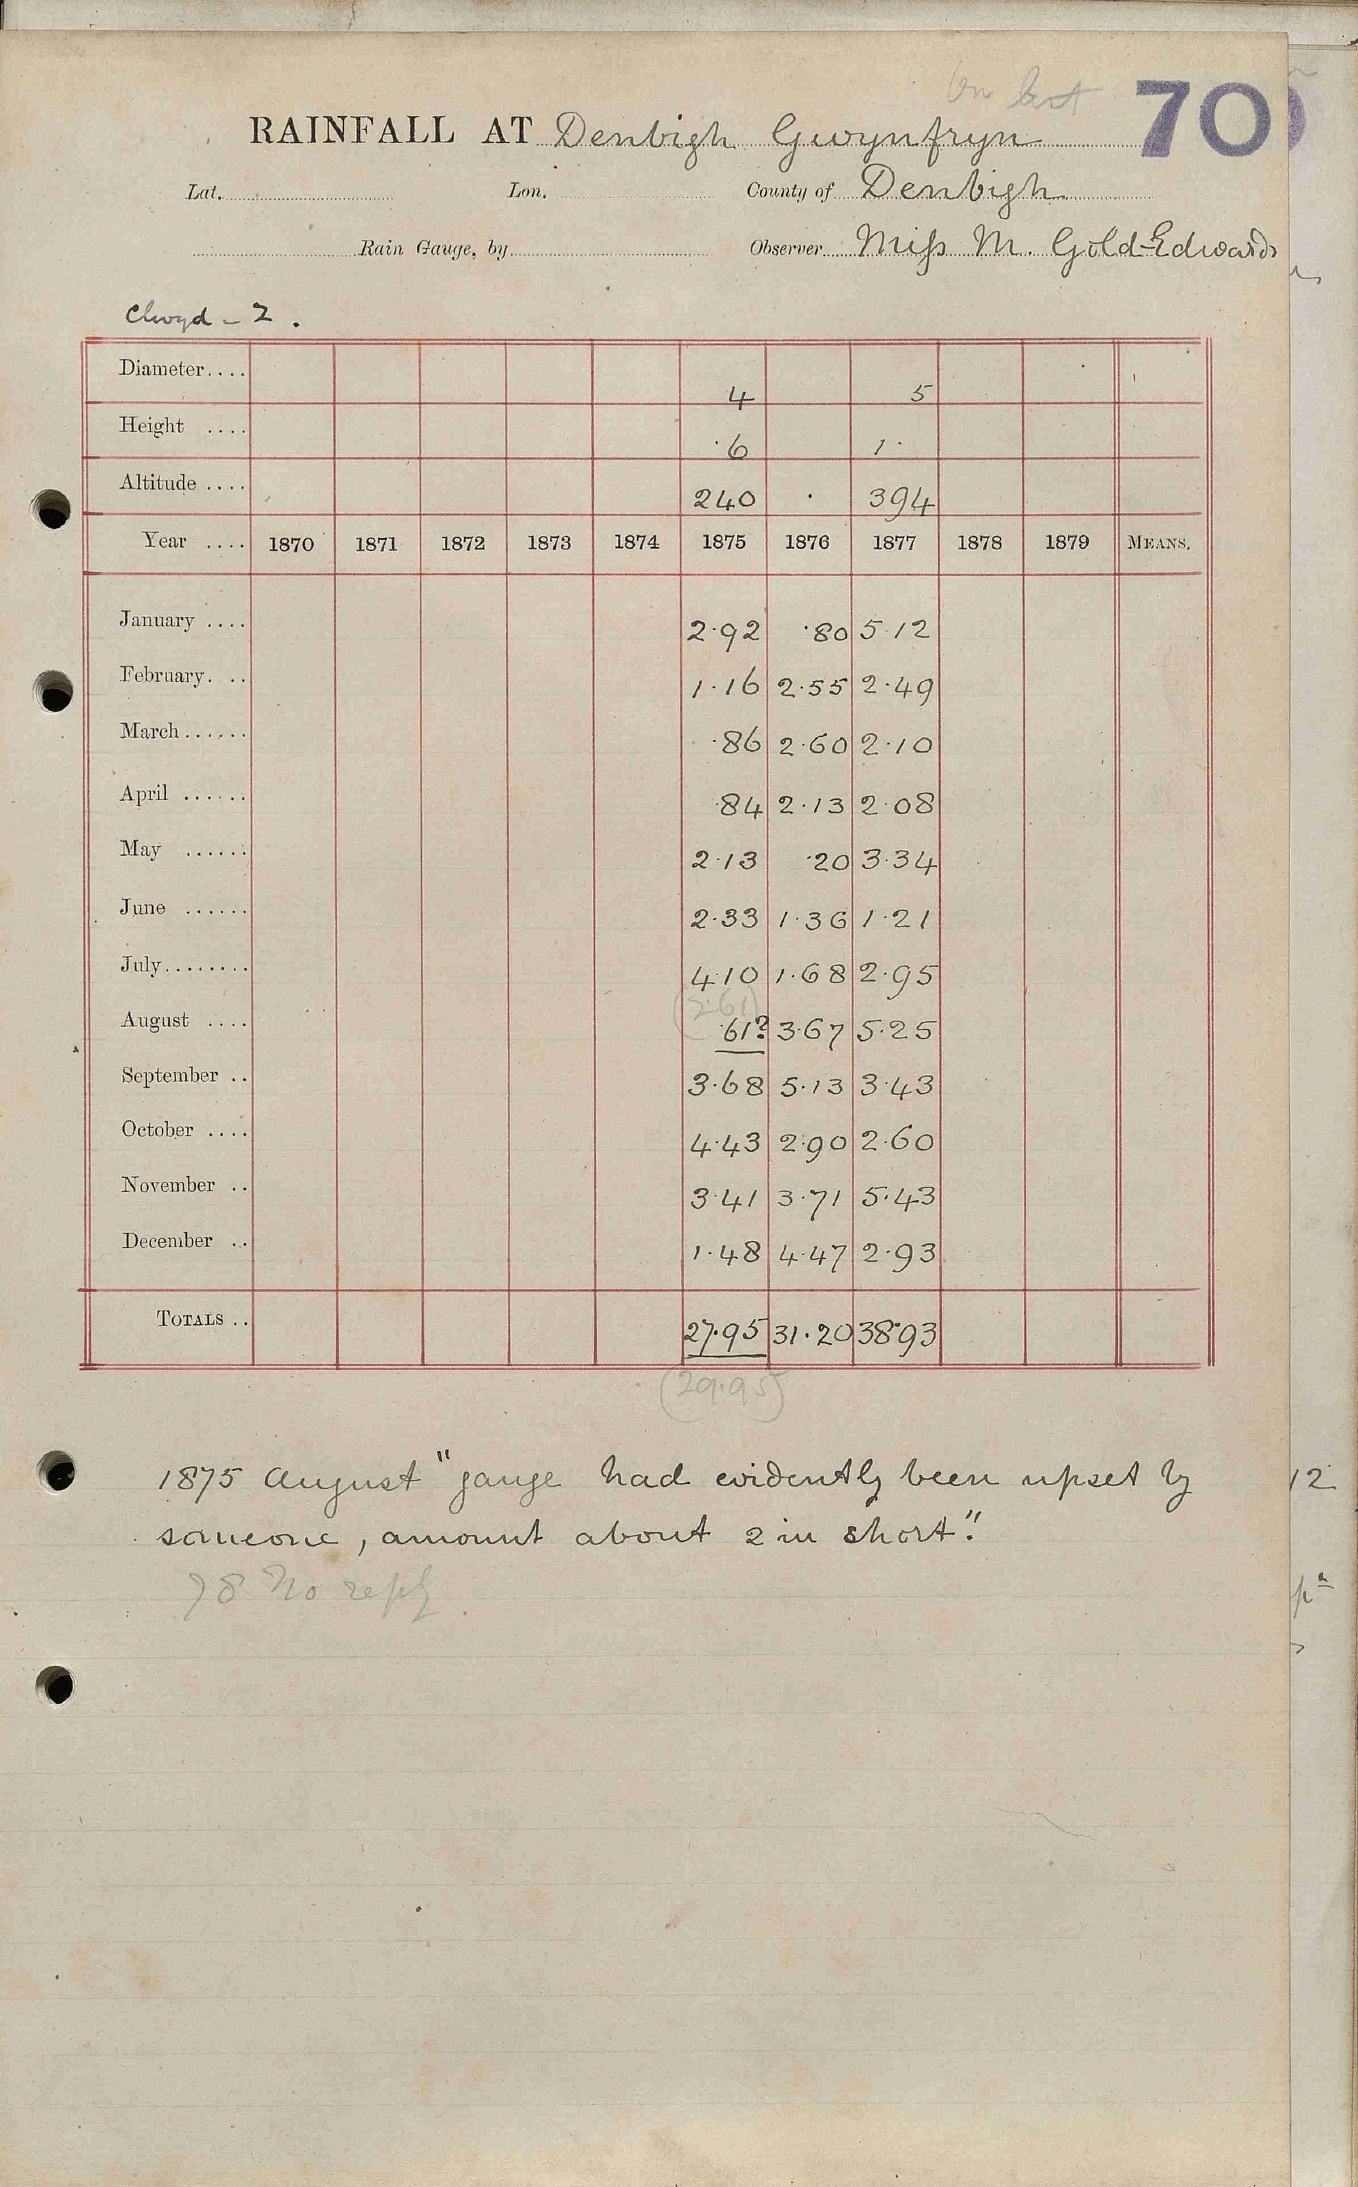 On last 70
RAINFALL AT Denbigh Gwynfryn
Lat. Lon. County of Denbigh
Rain Gauge, by Observer Miss M. Gold-Edwards
Clwyd - 2.
Diameter.... 4 5
Height .... ·6 1·
Altitude .... 240 · 394
Year .... 1870 1871 1872 1873 1874 1875 1876 1877 1878 1879 MEANS.
January .... 2·92 ·80 5·12
February. .. 1·16 2·55 2·49
March...... ·86 2·60 2·10
April ...... ·84 2·13 2·08
May ...... 2·13 ·20 3·34
June ...... 2·33 1·36 1·21
July........ 4·10 1·68 2·95
(2·61)
August .... ·61? 3·67 5·25
September .. 3·68 5·13 3·43
October .... 4·43 2·90 2·60
November .. 3·41 3·71 5·43
December .. 1·48 4·47 2·93
TOTALS .. 27·95 31·20 38·93
(29·95)
1875 August "gauge had evidently been upset by
someone, amount about 2 in short".
78 No reply
12
pn